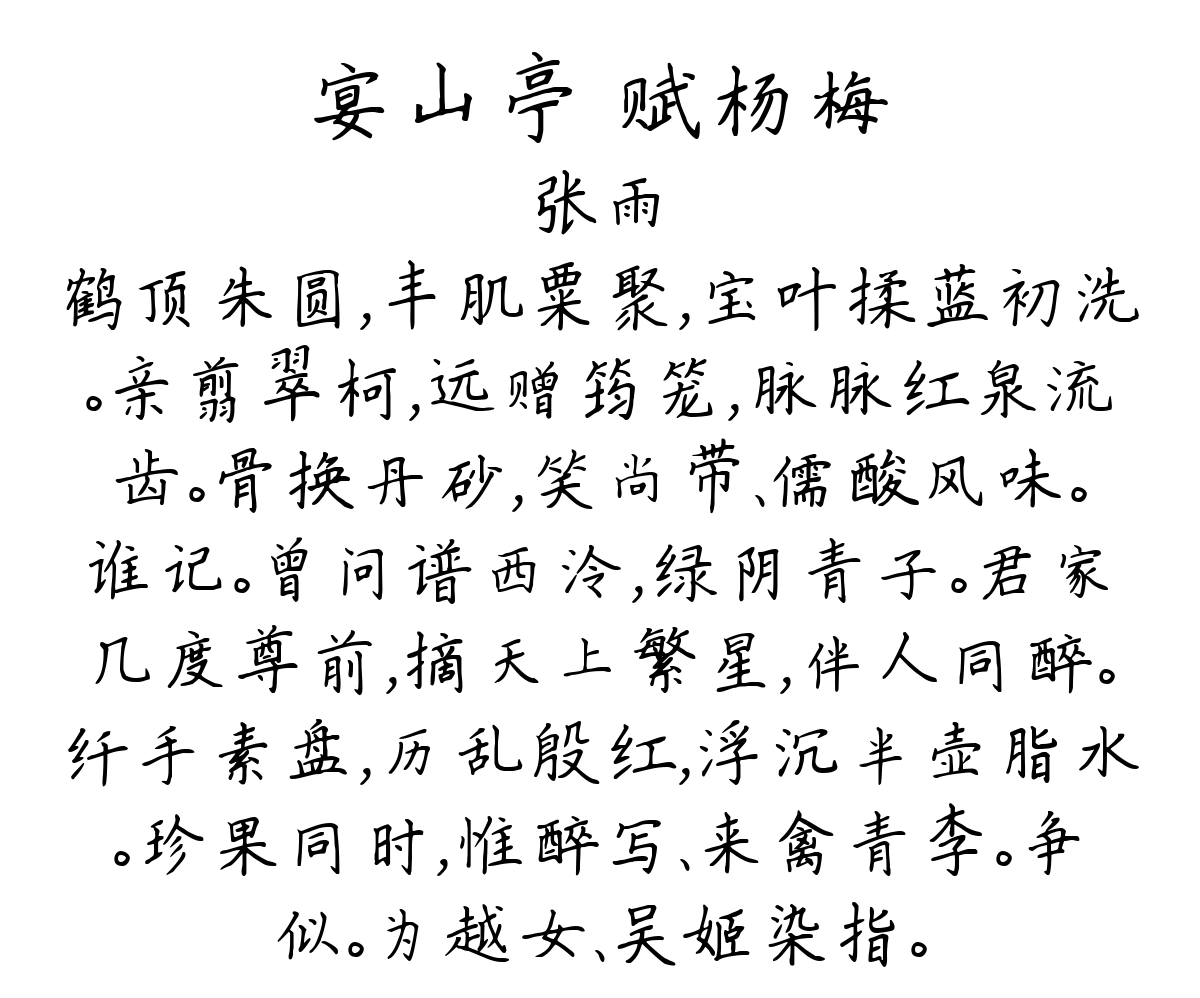 宴山亭 赋杨梅
张雨
鹤顶朱圆,丰肌粟聚,宝叶揉蓝初洗
。亲翦翠柯,远赠筠笼,脉脉红泉流
齿。骨换丹砂,笑尚带、儒酸风味。
谁记。曾问谱西泠,绿阴青子。君家
几度尊前,摘天上繁星,伴人同醉。
纤手素盘,历乱殷红,浮沉半壶脂水
。珍果同时,惟醉写、来禽青李。争
似。为越女、吴姬染指。